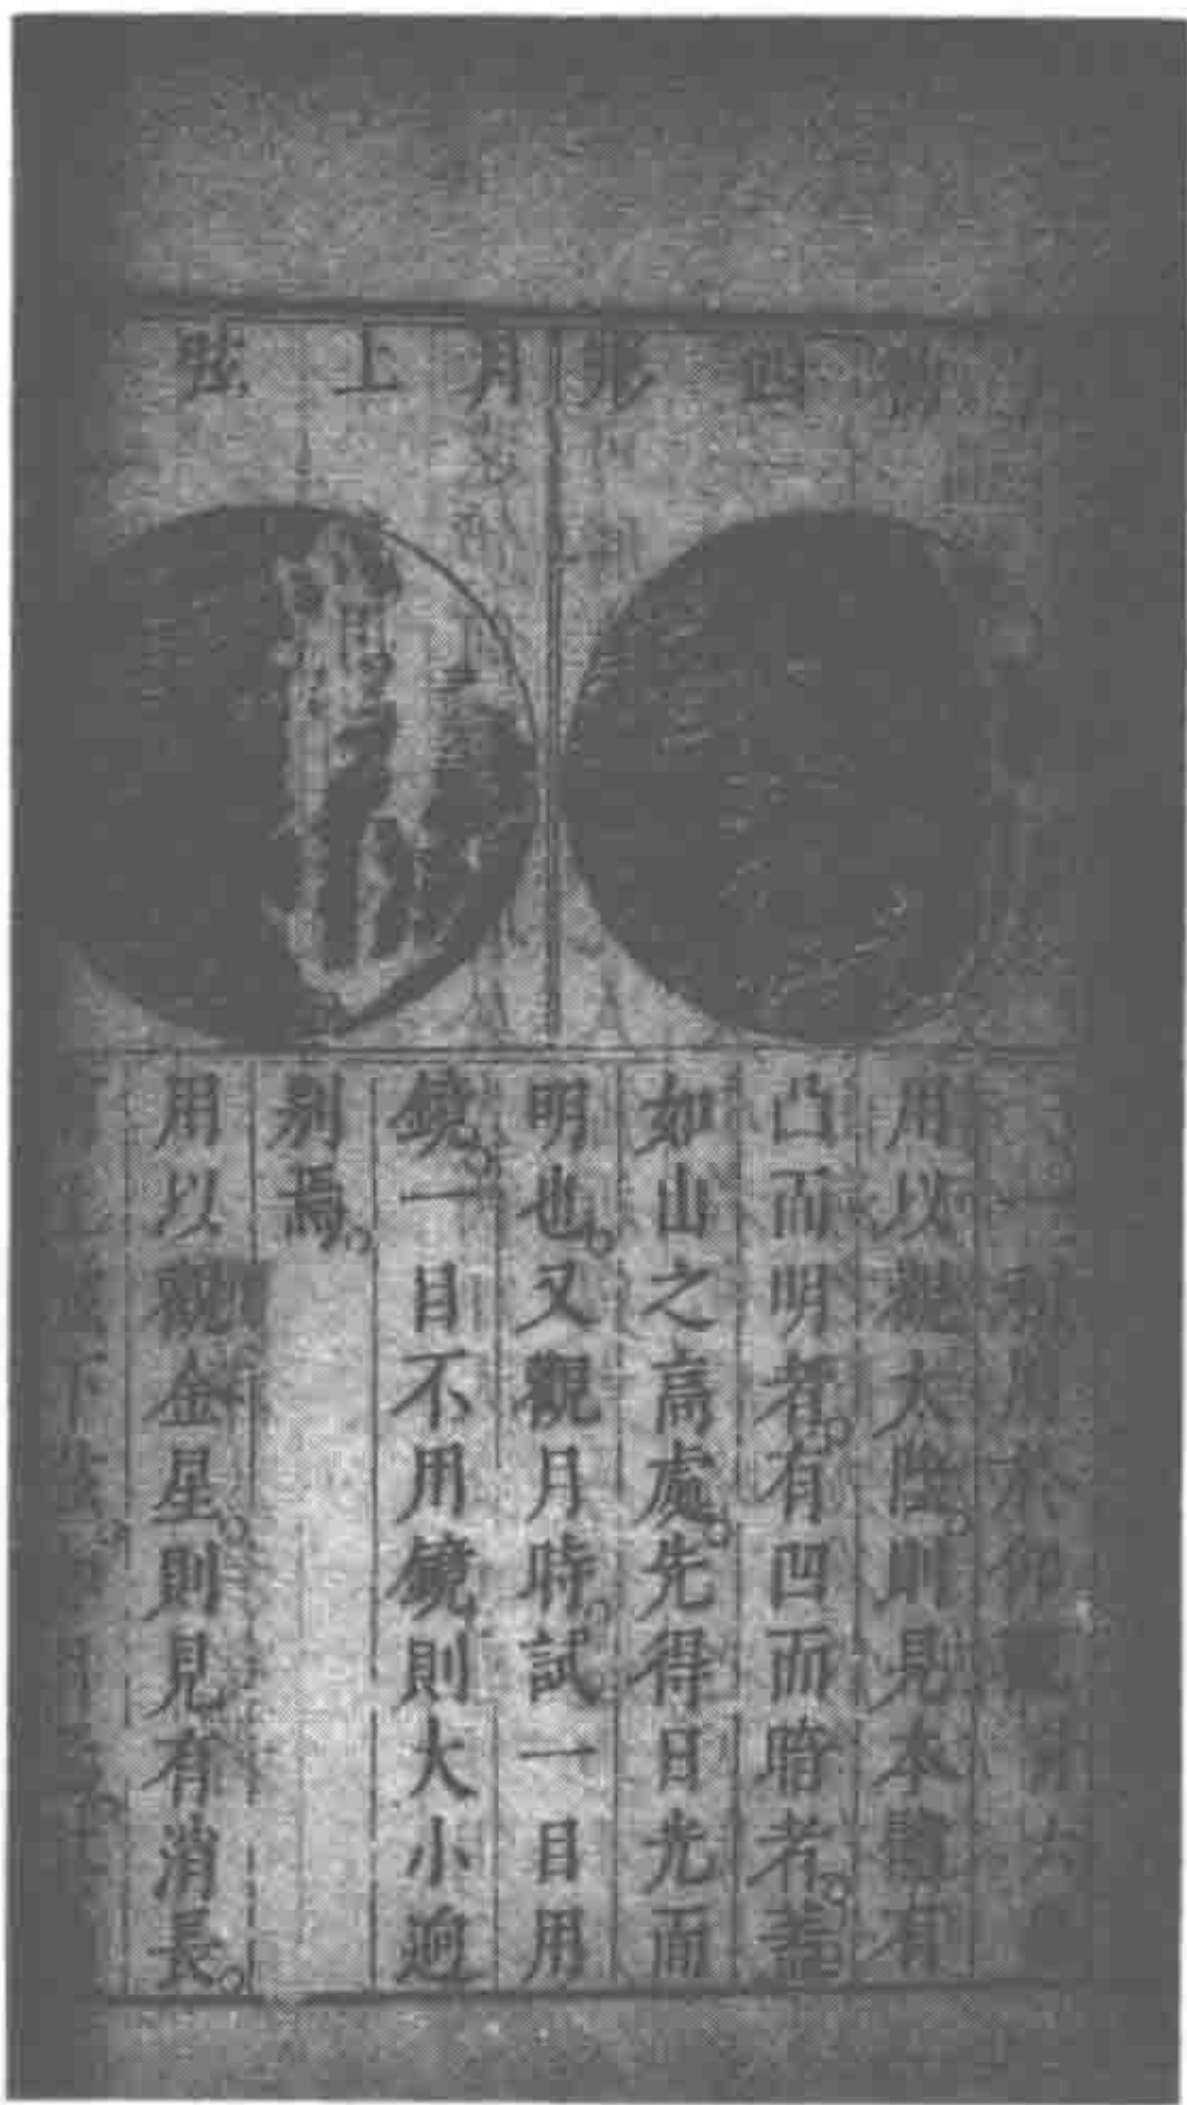 形
月上弦
用以觀太陰。則見本體有
凸而明者。有凹而暗者。蓋
如山之高處。先得日光而
明也。又觀月時。試一目用
鏡。一目不用鏡則大小迥
別焉。
用以觀金星。則見有消長。